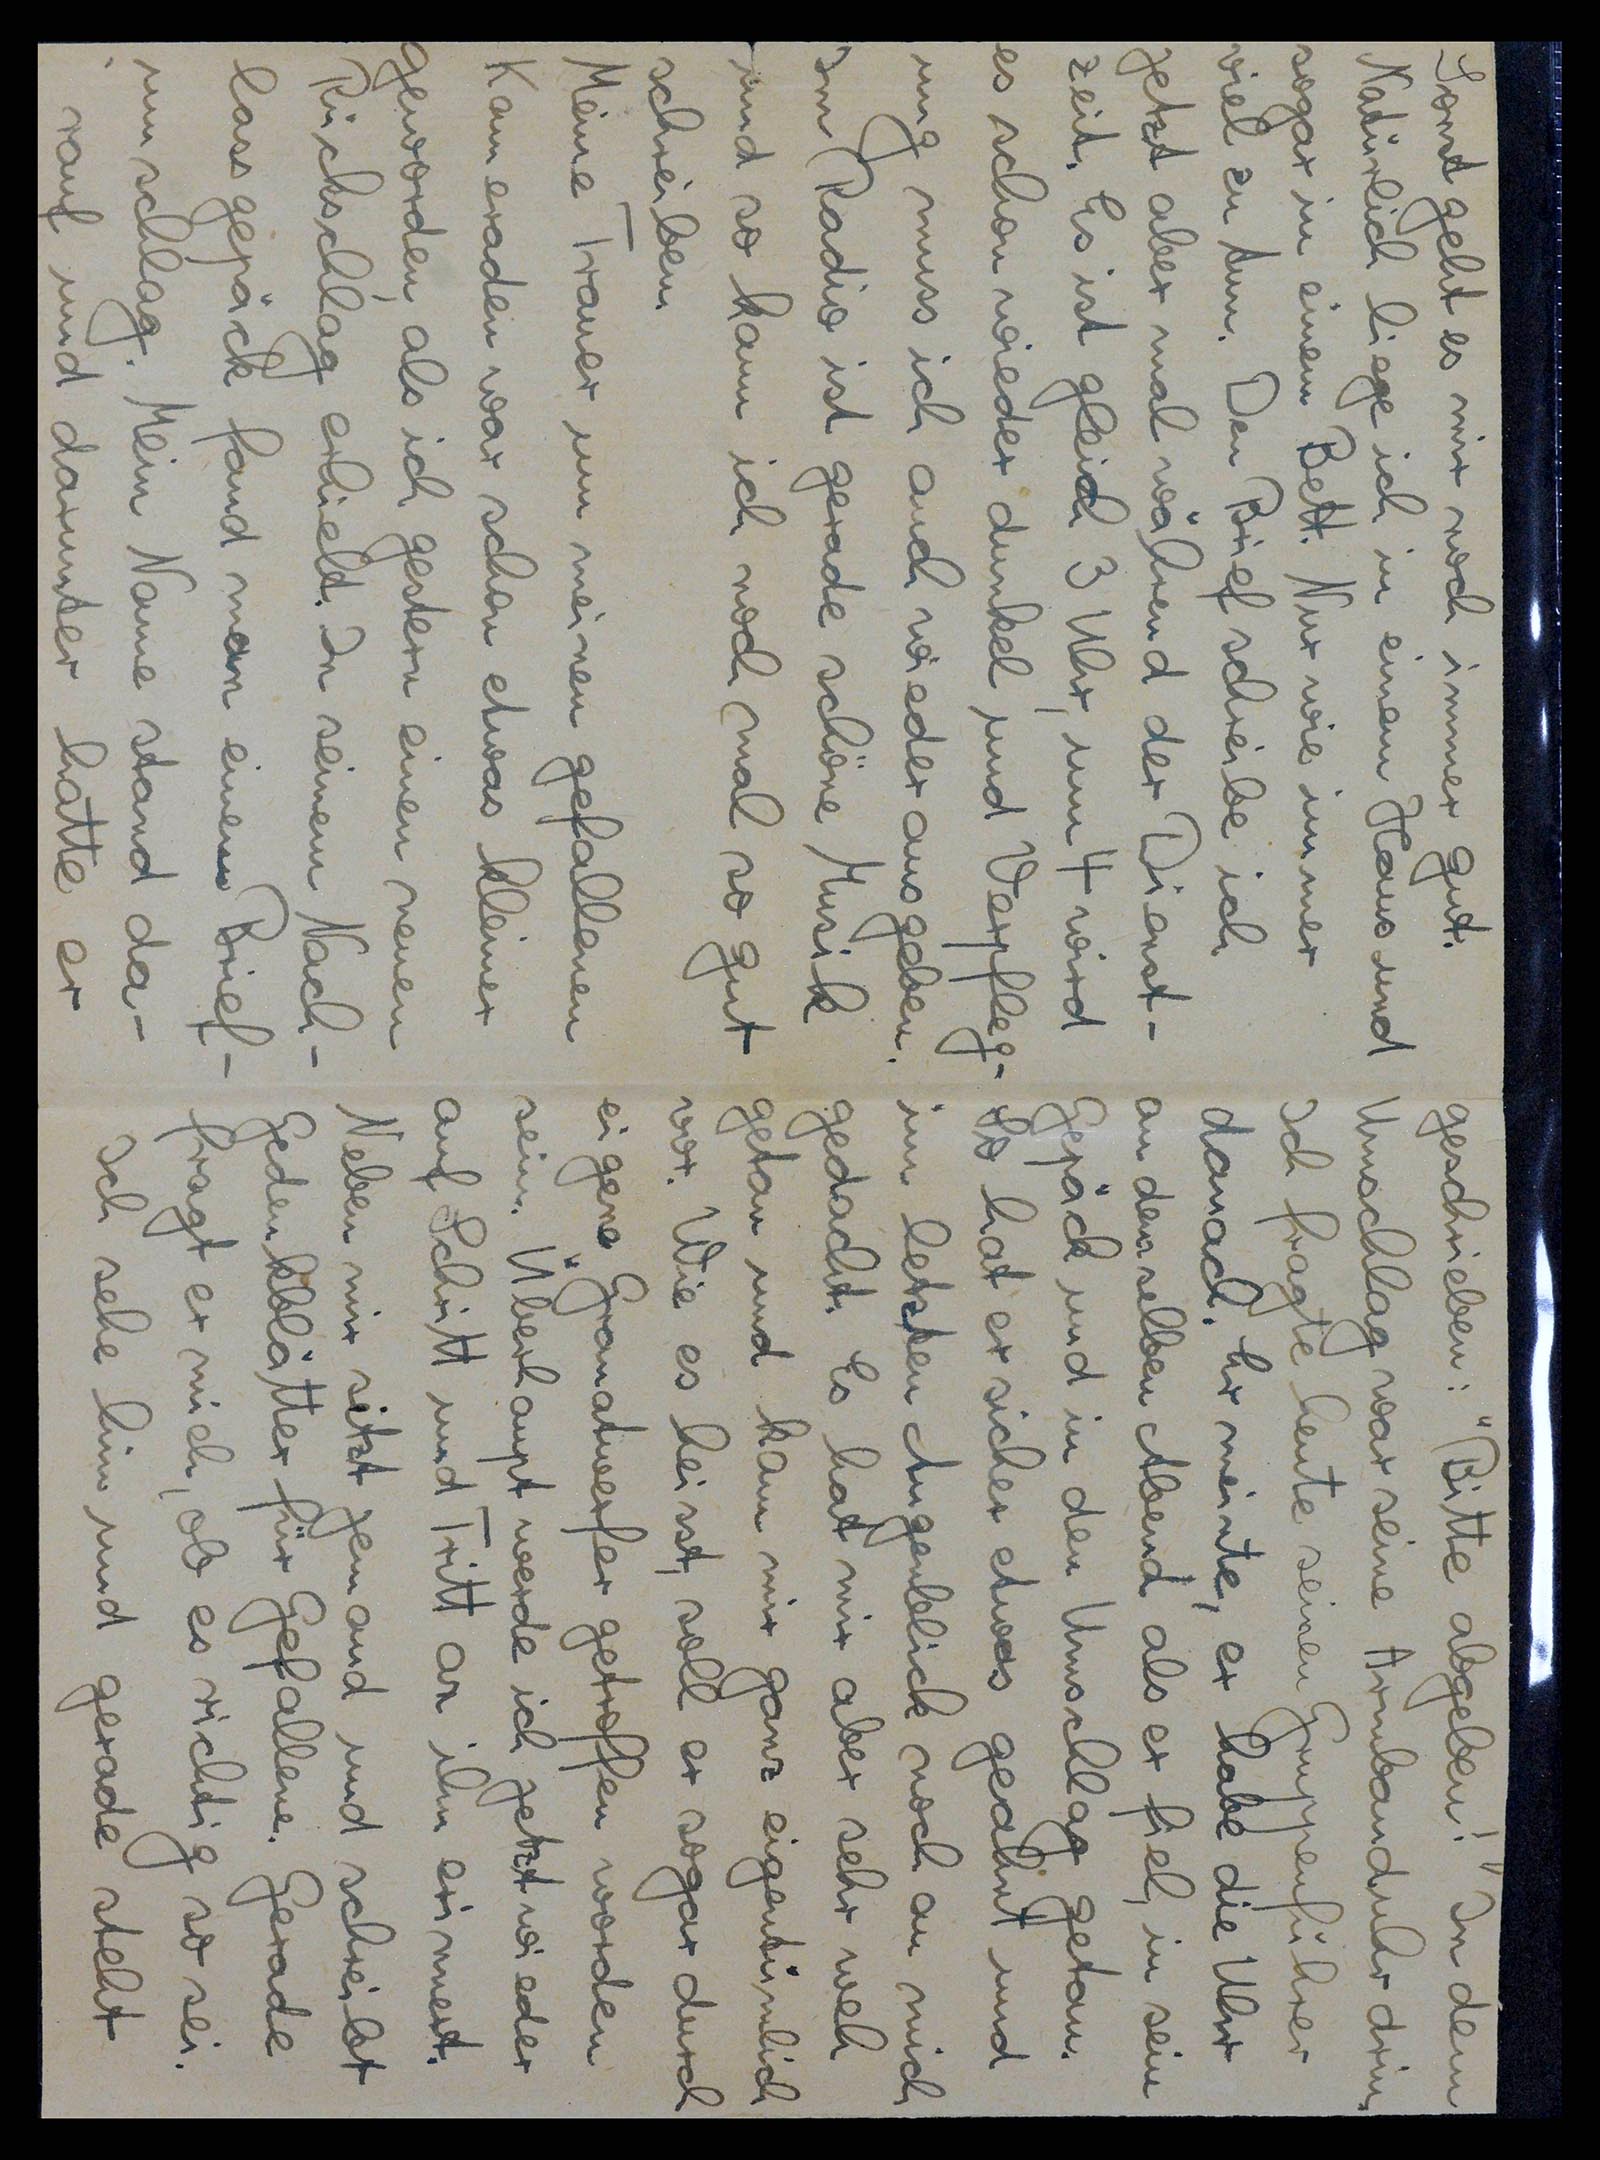 Sonst geht es mir noch immer gut.
Natürlich liege ich in einem Haus und
sogar in einem Bett. Nur wie immer
viel zu tun. Den Brief schreibe ich
jetzt aber mal während der Dienst-
zeit. Es ist gleich 3 Uhr, um 4 wird
es schon wieder dunkel und Verpfleg-
ung muss ich auch wieder ausgeben.
Im Radio ist gerade schöne Musik
und so kann ich noch mal so gut
schreiben.
Meine Trauer um meinen gefallenen
Kameraden war schon etwas kleiner
geworden, als ich gestern einen neuen
Rückschlag erhielt. In seinem Nach-
lassgepäck fand man einen Brief-
umschlag. Mein Name stand da-
rauf und darunter hatte er
geschrieben: "Bitte abgeben!" In dem
Umschlag war seine Armbanduhr drin.
Ich fragte heute seinen Gruppenführer
danach. Er meinte, er habe die Uhr
an demselben Abend als er fiel, in sein
Gepäck und in den Umschlag getan.
So hat er sicher etwas geahnt und
im letzten Augenblick noch an mich
gedacht. Es hat mir aber sehr weh
getan und kam mir ganz eigentümlich
vor. Wie es heisst, soll er sogar durch
eigene Granatwerfer getroffen worden
sein. Überhaupt werde ich jetzt wieder
auf Schritt und Tritt an ihn erinnert.
Neben mir sitzt jemand und schreibt
Gedenkblätter für Gefallene. Gerade
fragt er mich, ob es richtig so sei.
Ich sehe hin und gerade steht